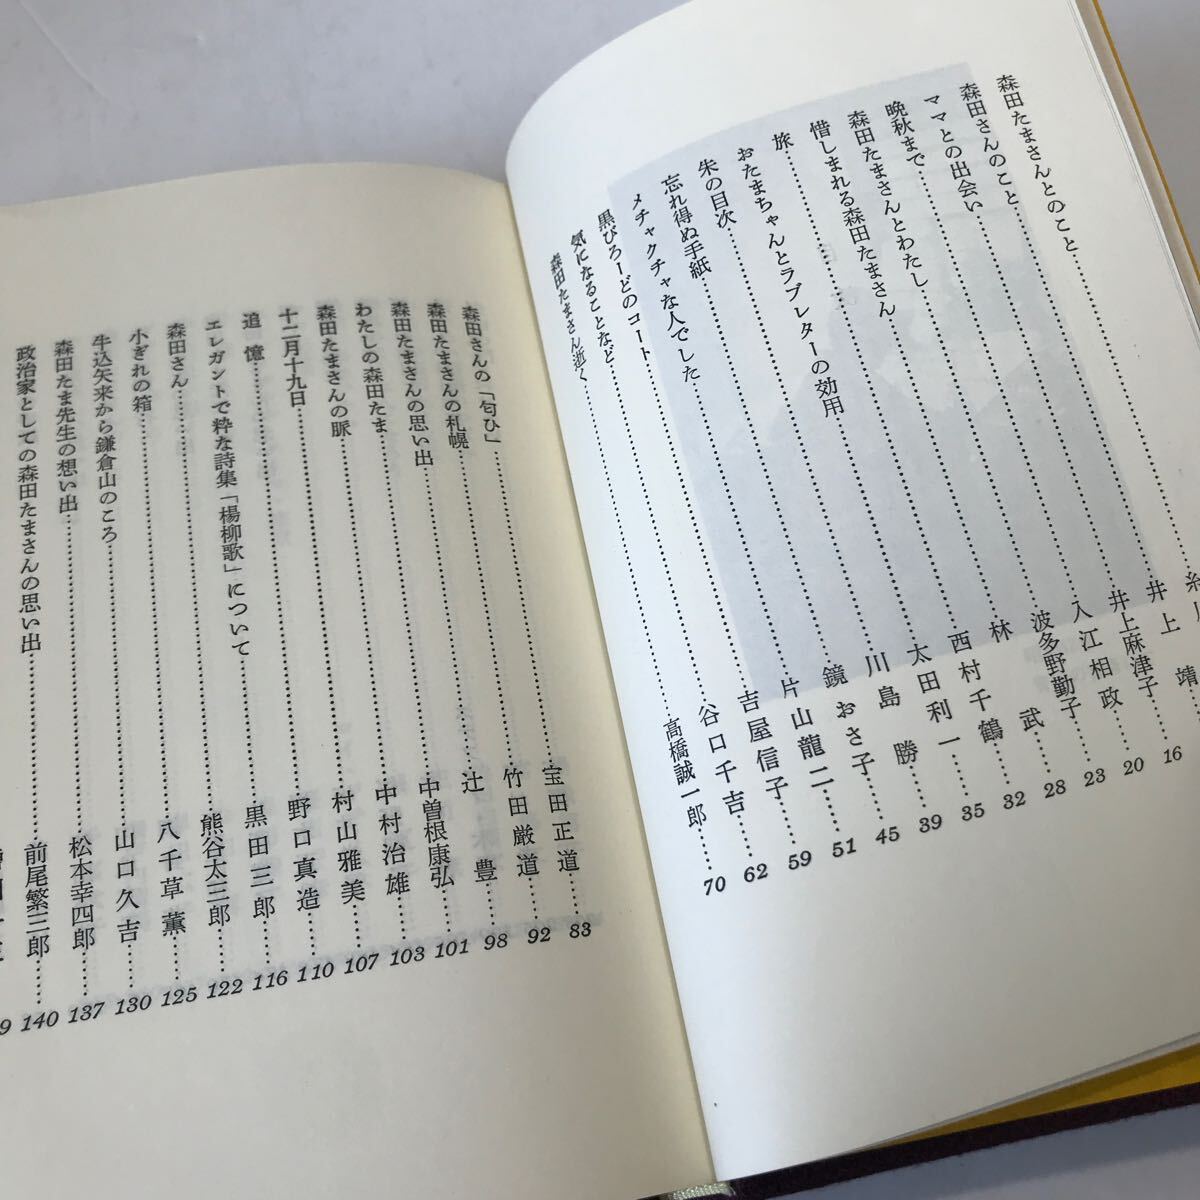 森田たまさんとのこと……糸
森田さんのこと……井上 靖
ママとの出会い……井上麻津子 16
晩秋まで……入江相政 20
森田たまさんとわたし……波多野勤子 23
惜しまれる森田たまさん……林 武 28
旅……西村千鶴 32
おたまちゃんとラブレターの効用……太田利一 35
朱の目次……川島 勝 39
忘れ得ぬ手紙……鏡おさ子 45
メチャクチャな人でした……片山龍二 51
黒びろーどのコート……吉屋信子 59
気になることなど……谷口千吉 62
森田たまさん逝く……高橋誠一郎 70
森田さんの「匂ひ」……宝田正道……83
森田たまさんの札幌……竹田厳道……92
森田たまさんの思い出……辻 豊……98
わたしの森田たま……中曽根康弘……101
森田たまさんの脈……中村治雄……103
十二月十九日……村山雅美……107
追憶……野口真造……110
エレガントで粋な詩集「楊柳歌」について……黒田三郎……116
森田さん……熊谷太三郎……122
小ぎれの箱……八千草薫……125
牛込矢来から鎌倉山のころ……山口久吉……130
森田たま先生の想い出……松本幸四郎……137
政治家としての森田たまさんの思い出……前尾繁三郎……140